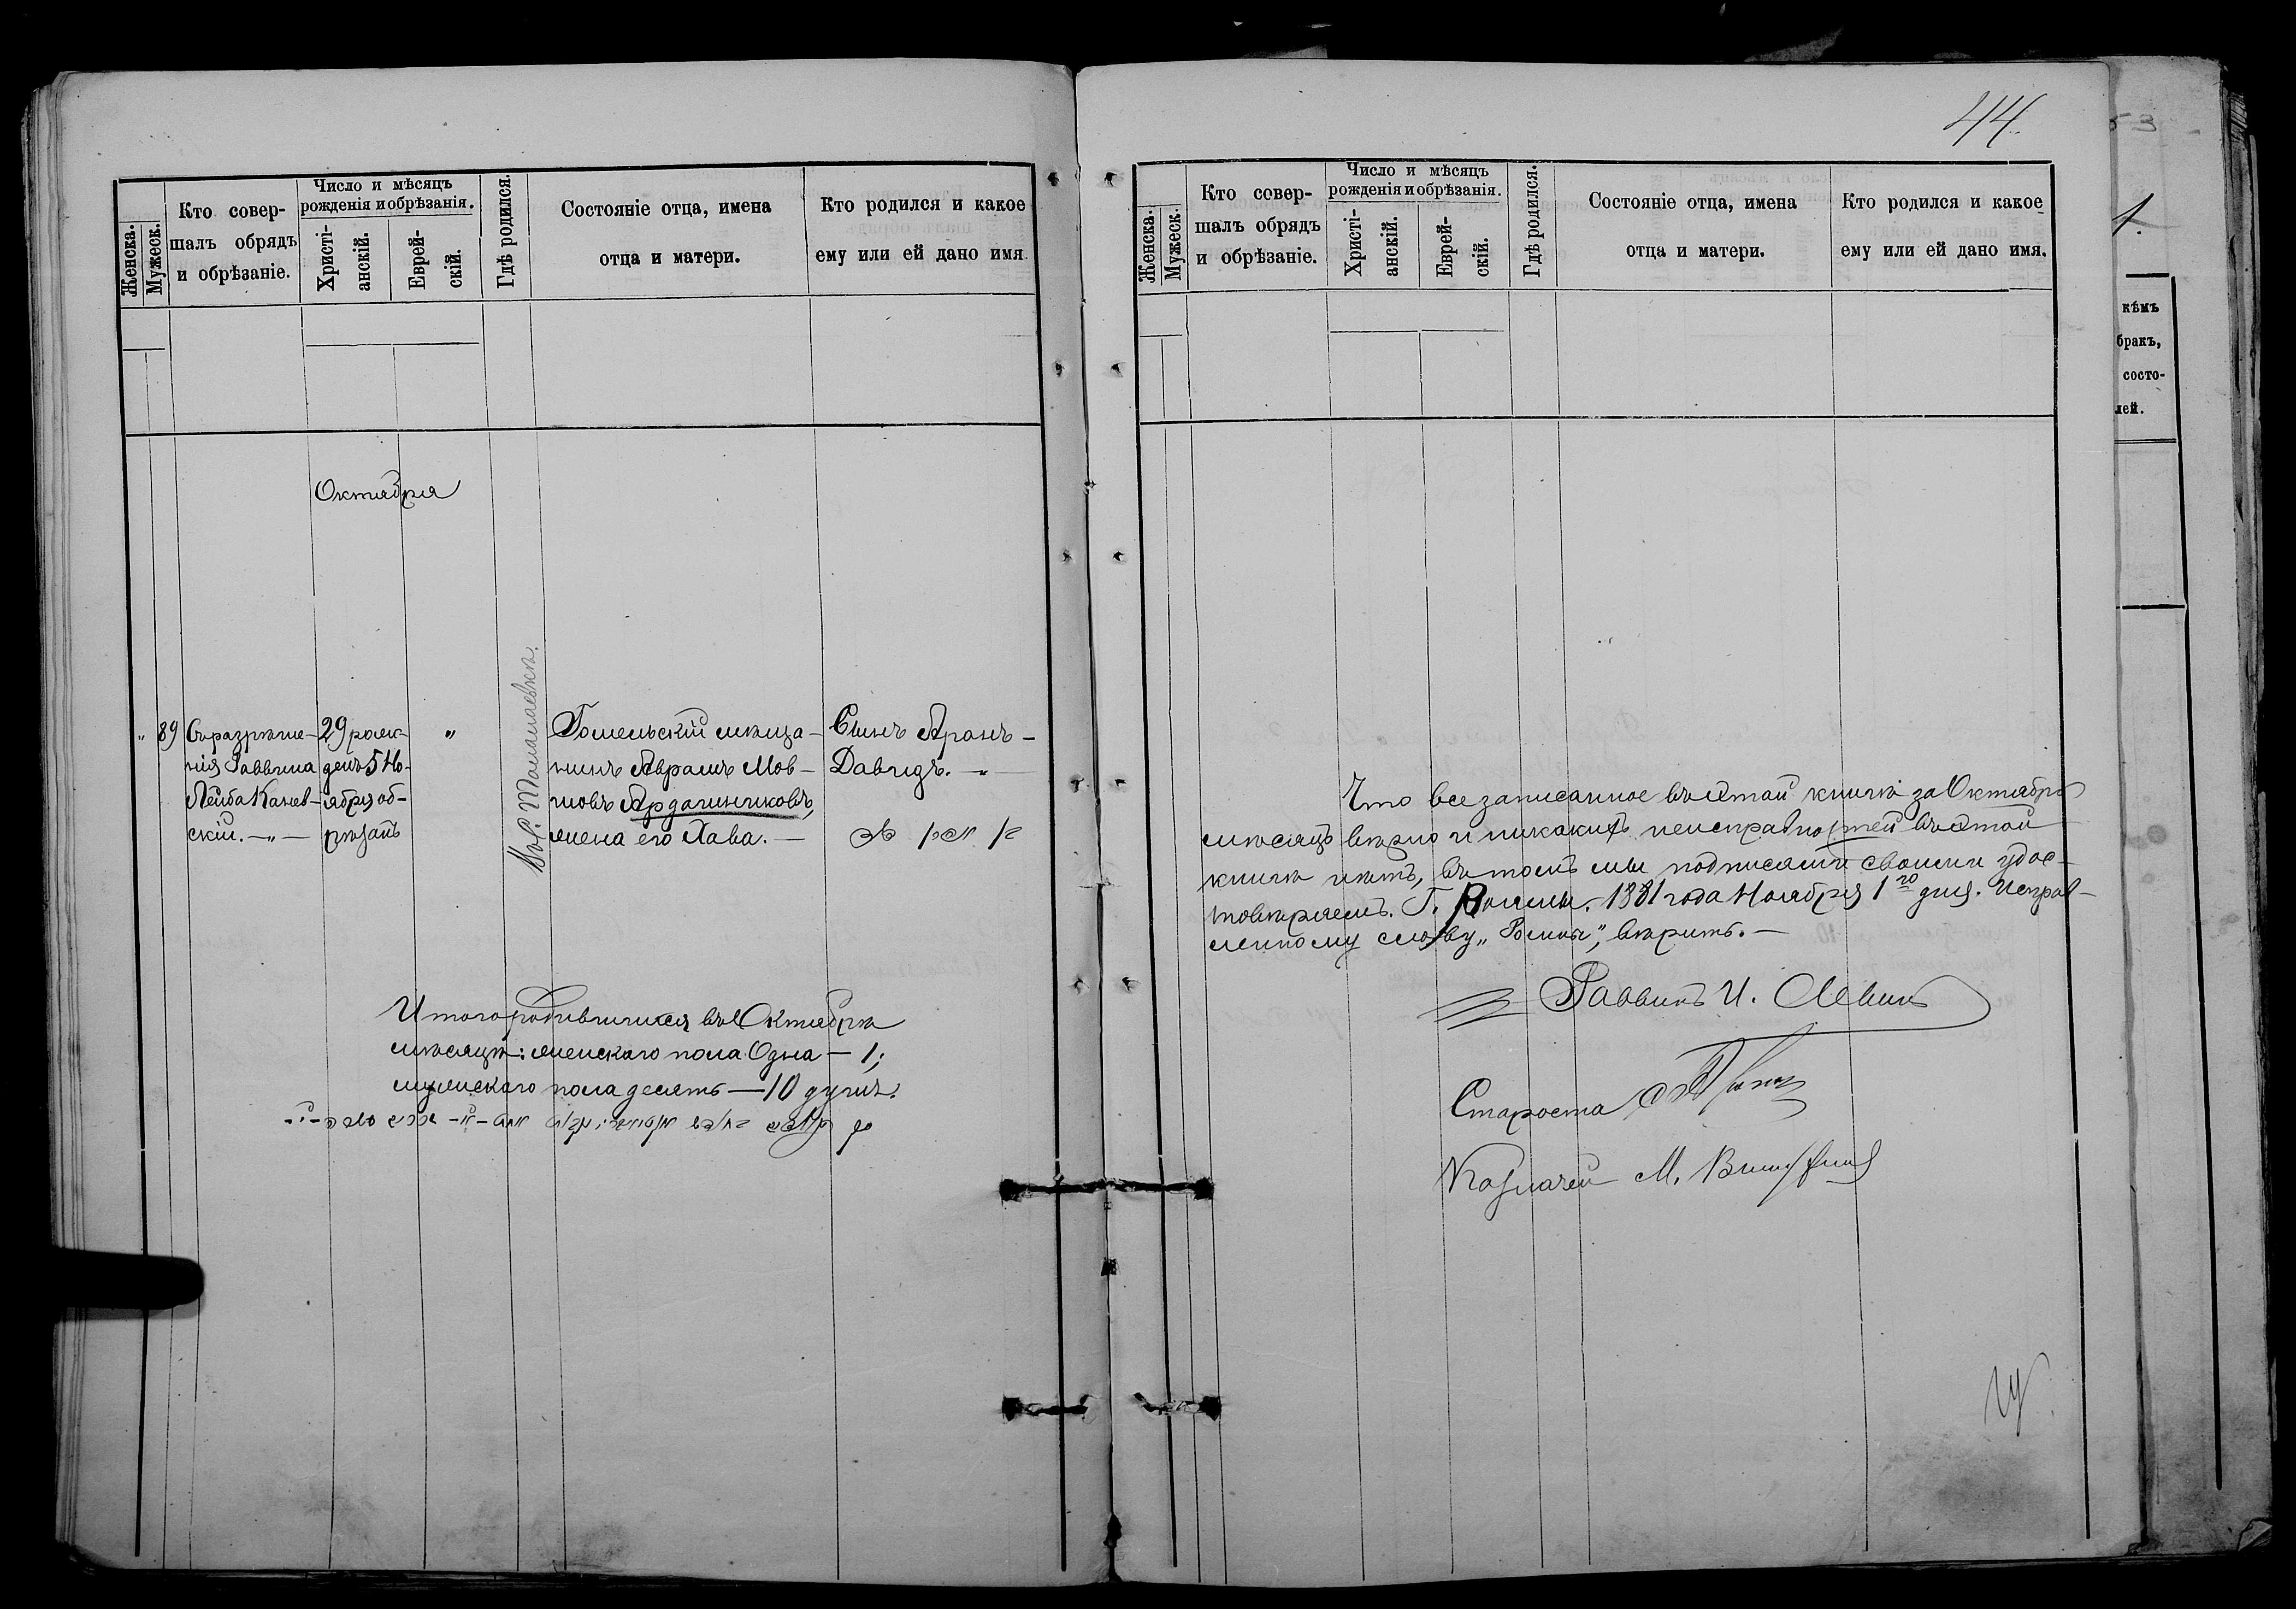 44.
Женска.
Мужеск.
Кто совер-
шалъ обрядъ
и обрѣзаніе.
Число и мѣсяцъ
рожденія и обрѣзанія.
Христі-
анскій.
Еврей-
скій.
Гдѣ родился.
Состояніе отца, имена
отца и матери.
Кто родился и какое
ему или ей дано имя
Октября
" 89 Съ разрѣше-
нія Раввина
Лейба Канев-
скій. —„—
29 рож-
денъ 5 Но-
ября об-
рѣзанъ
"
Гомельскій мѣща-
нинъ Аврамъ Мов-
шовъ
жена его Хава. —
Сынъ Аронъ-
Давидъ. —„—
Итого родившихся въ Октябрѣ
мѣсяцѣ: женскаго пола Одна — 1;
мужескаго пола десять — 10 душъ.
Женска.
Мужеск.
Кто совер-
шалъ обрядъ
и обрѣзаніе.
Число и мѣсяцъ
рожденія и обрѣзанія.
Христі-
анскій.
Еврей-
скій.
Гдѣ родился.
Состояніе отца, имена
отца и матери.
Кто родился и какое
ему или ей дано имя.
Что все записанное въ этой книгѣ за Октябрь
мѣсяцъ вѣрно и никакихъ неисправностей въ этой
книгѣ нѣтъ, въ томъ мы подписями своими удос-
товѣряемъ. Г. Ромны. 1881 года Ноября 1го дня. Исправ-
ленному слову „Ромны", вѣрить. —
Раввинъ И. Левинъ
Староста
Казначей М.
1.
кѣмъ
бракъ,
состо-
лей.